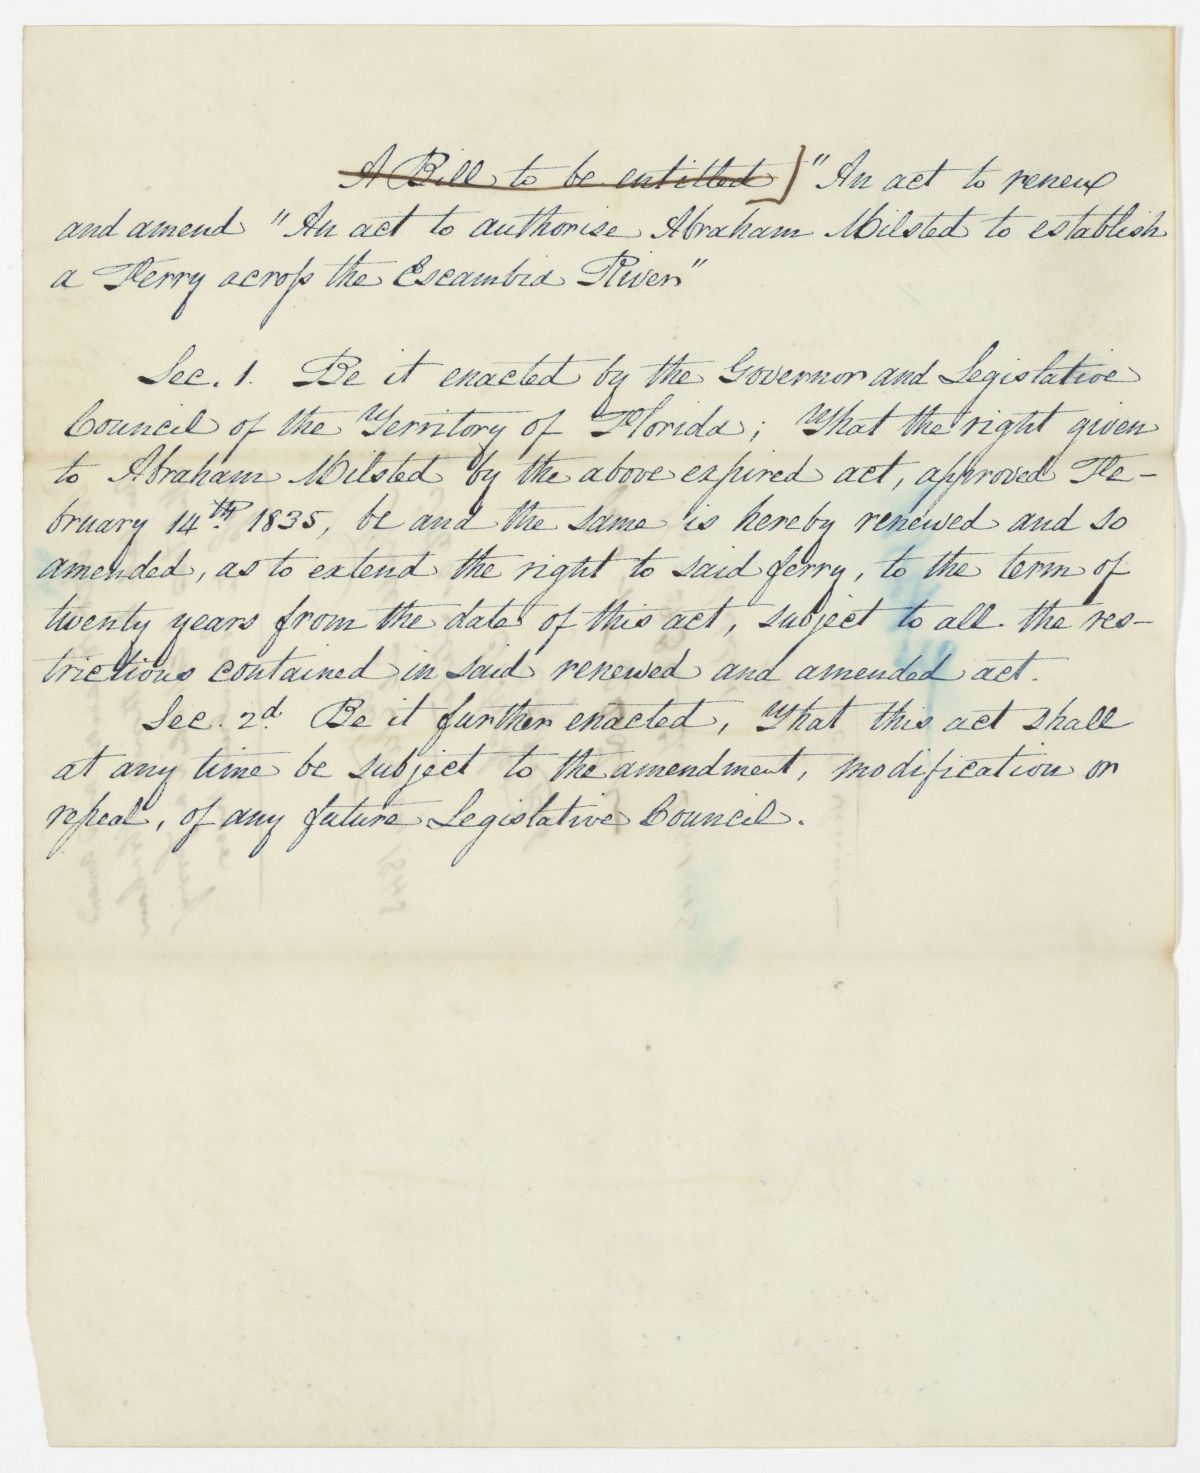 A Bill to be entitled] "An act to renew
and amend "An act to authorise Abraham Milsted to establish
a Ferry across the Escambia River"
Sec. 1. Be it enacted by the Governor and Legislative
Council of the Territory of Florida; That the right given
to Abraham Milsted by the above expired act, approved Fe-
bruary 14th 1835, be and the same is hereby renewed and so
amended, as to extend the right to said ferry, to the term of
twenty years from the date of this act, subject to all the res-
trictions contained in said renewed and amended act.
Sec. 2d. Be it further enacted, That this act shall
at any time be subject to the amendment, modification or
repeal, of any future Legislative Council.